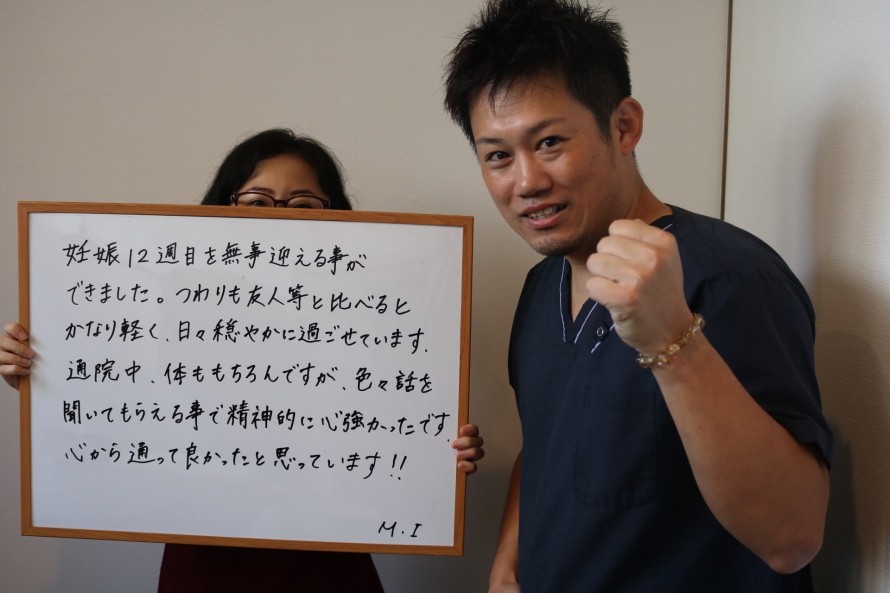 妊娠12週目を無事迎える事が
できました。つわりも友人等と比べると
かなり軽く、日々穏やかに過ごせています。
通院中、体ももちろんですが、色々話を
聞いてもらえる事で精神的に心強かったです。
心から通って良かったと思っています!!
M.I